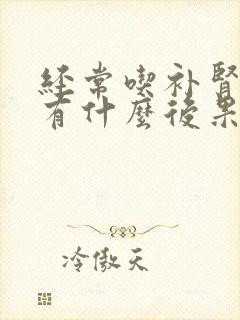 經常喫补腎
有什麼後果
冷傲天